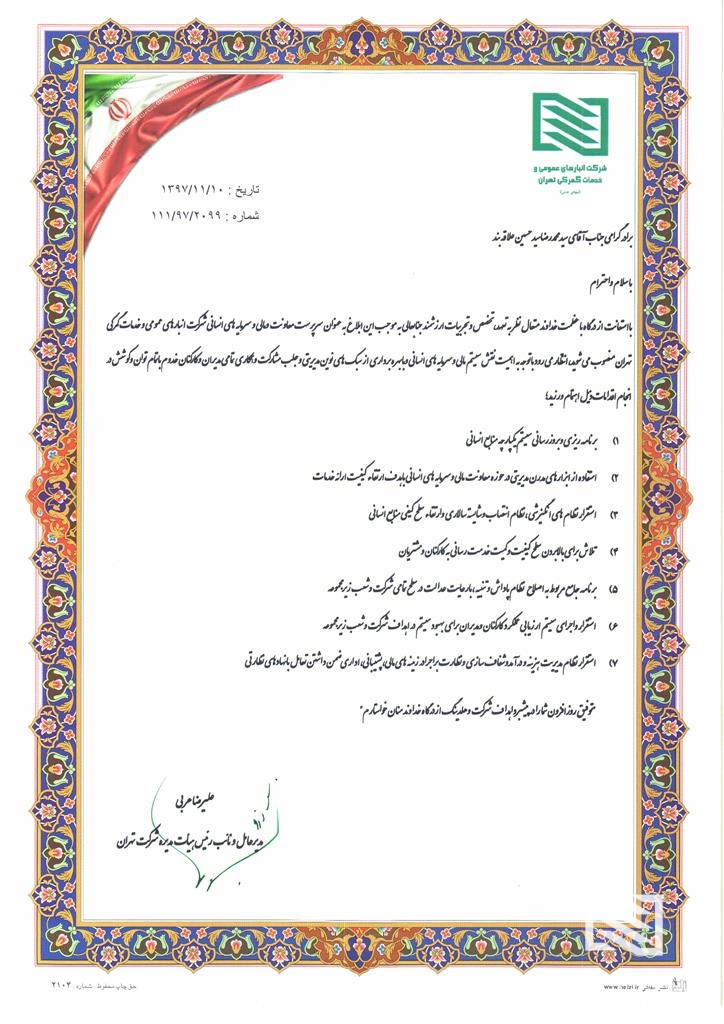 شرکت انبارهای عمومی و
خدمات گمرکی تهران
(سهامی خاص)
تاریخ : ۱۳۹۷/۱۱/۱۰
شماره : ۱۱۱/۹۷/۲۰۹۹
برادر گرامی جناب آقای سید محمدرضا سید حسین علاقه بند
با سلام و احترام
با استعانت از درگاه با عظمت خداوند متعال نظر به تعهد، تخصص و تجربیات ارزشمند جنابعالی به موجب این ابلاغ به عنوان سرپرست معاونت مالی و سرمایه های انسانی شرکت انبارهای عمومی و خدمات گمرکی
تهران منصوب می شوید، انتظار می رود با توجه به اهمیت نقش سیستم مالی و سرمایه های انسانی و با بهره برداری از سبک های نوین مدیریتی و جلب مشارکت و همکاری تمامی مدیران و کارکنان خدوم با تمام توان و کوشش در
انجام اقدامات ذیل اهتمام ورزید؛
۱) برنامه ریزی و بروز رسانی سیستم یکپارچه منابع انسانی
۲) استفاده از ابزارهای مدرن مدیریتی در حوزه معاونت مالی و سرمایه های انسانی با هدف ارتقاء کیفیت ارائه خدمات
۳) استقرار نظام های انگیزشی، نظام انتصاب و شایسته سالاری و ارتقاء سطح کیفی منابع انسانی
۴) تلاش برای بالا بردن سطح کیفیت و کمیت خدمت رسانی به کارکنان و مشتریان
۵) برنامه جامع مربوط به اصلاح نظام پاداش و تنبیه، با رعایت عدالت در سطح تمامی شرکت و شعب زیرمجموعه
۶) استقرار و اجرای سیستم ارزیابی عملکرد کارکنان و مدیران برای بهبود سیستم در اهداف شرکت و شعب زیرمجموعه
۷) استقرار نظام مدیریت هزینه و درآمد و شفاف سازی و نظارت بر اجرا در زمینه های مالی، پشتیبانی، اداری ضمن داشتن تعامل با نهادهای نظارتی
توفیق روزافزون شما را در پیشبرد اهداف شرکت و هلدینگ از درگاه خداوند منان خواستارم
علیرضا عربی
مدیرعامل و نائب رئیس هیات مدیره شرکت تهران
حق چاپ محفوظ. شماره: ۲۱۰۳